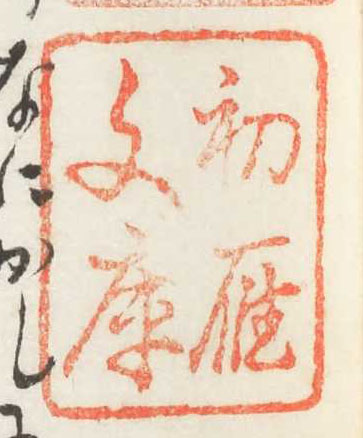 初雁
文庫
なにかし